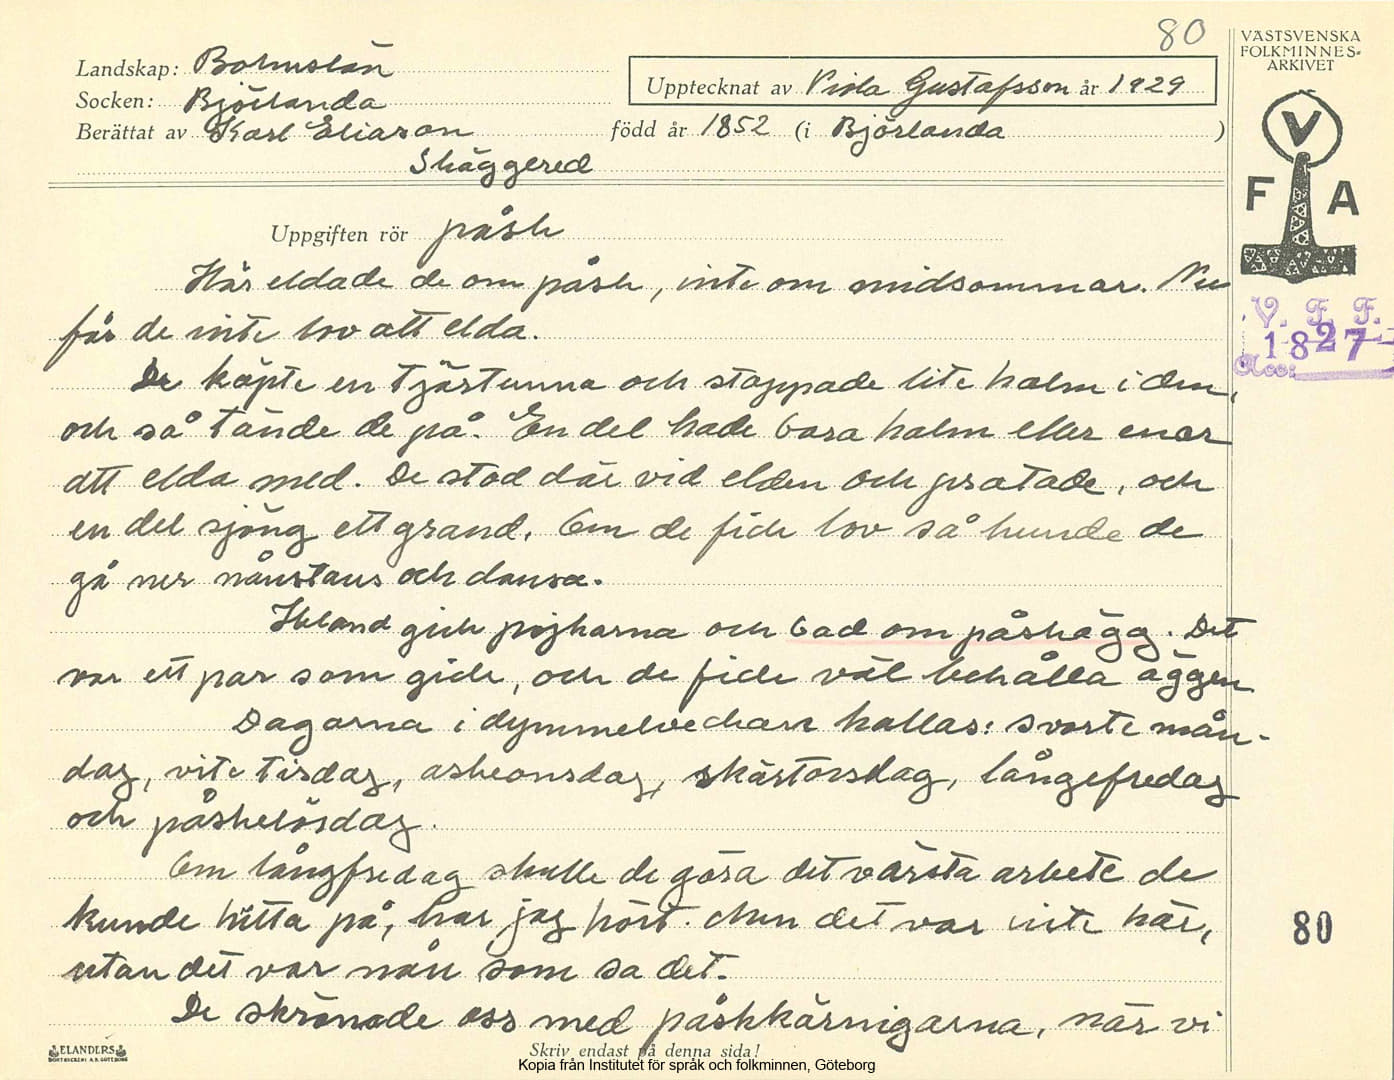 80
VÄSTSVENSKA
FOLKMINNES-
ARKIVET
Landskap: Bohuslän
Upptecknat av Viola Gustafsson år 1929
Socken: Björlanda
Berättat av Karl Eliasson född år 1852 (i Björlanda )
Skäggered
V
F A
Uppgiften rör påsk
Här eldade de om påsk, inte om midsommar. Nu
får de inte lov att elda.
V. F. F.
1827
Acc:
De köpte en tjärtunna och stoppade lite halm i den,
och så tände de på. En del hade bara halm eller enar
att elda med. De stod där vid elden och pratade, och
en del sjöng ett grand. Om de fick lov så kunde de
gå ner nånstans och dansa.
Ibland gick pojkarna och bad om påskägg. Det
var ett par som gick, och de fick väl behålla äggen
Dagarna i dymmelveckan kallas: svarte mån-
dag, vite tisdag, askeonsdag, skärtorsdag, långefredag
och påskelördag.
Om långfredag skulle de göra det värsta arbete de
kunde hitta på, har jag hört. Men det var inte här,
utan det var nån som sa det.
80
De skrämde oss med påskkärnigarna, när vi
ELANDERS
BOKTRYCKERI A.B. GÖTEBORG
Skriv endast på denna sida!
Kopia från Institutet för språk och folkminnen, Göteborg